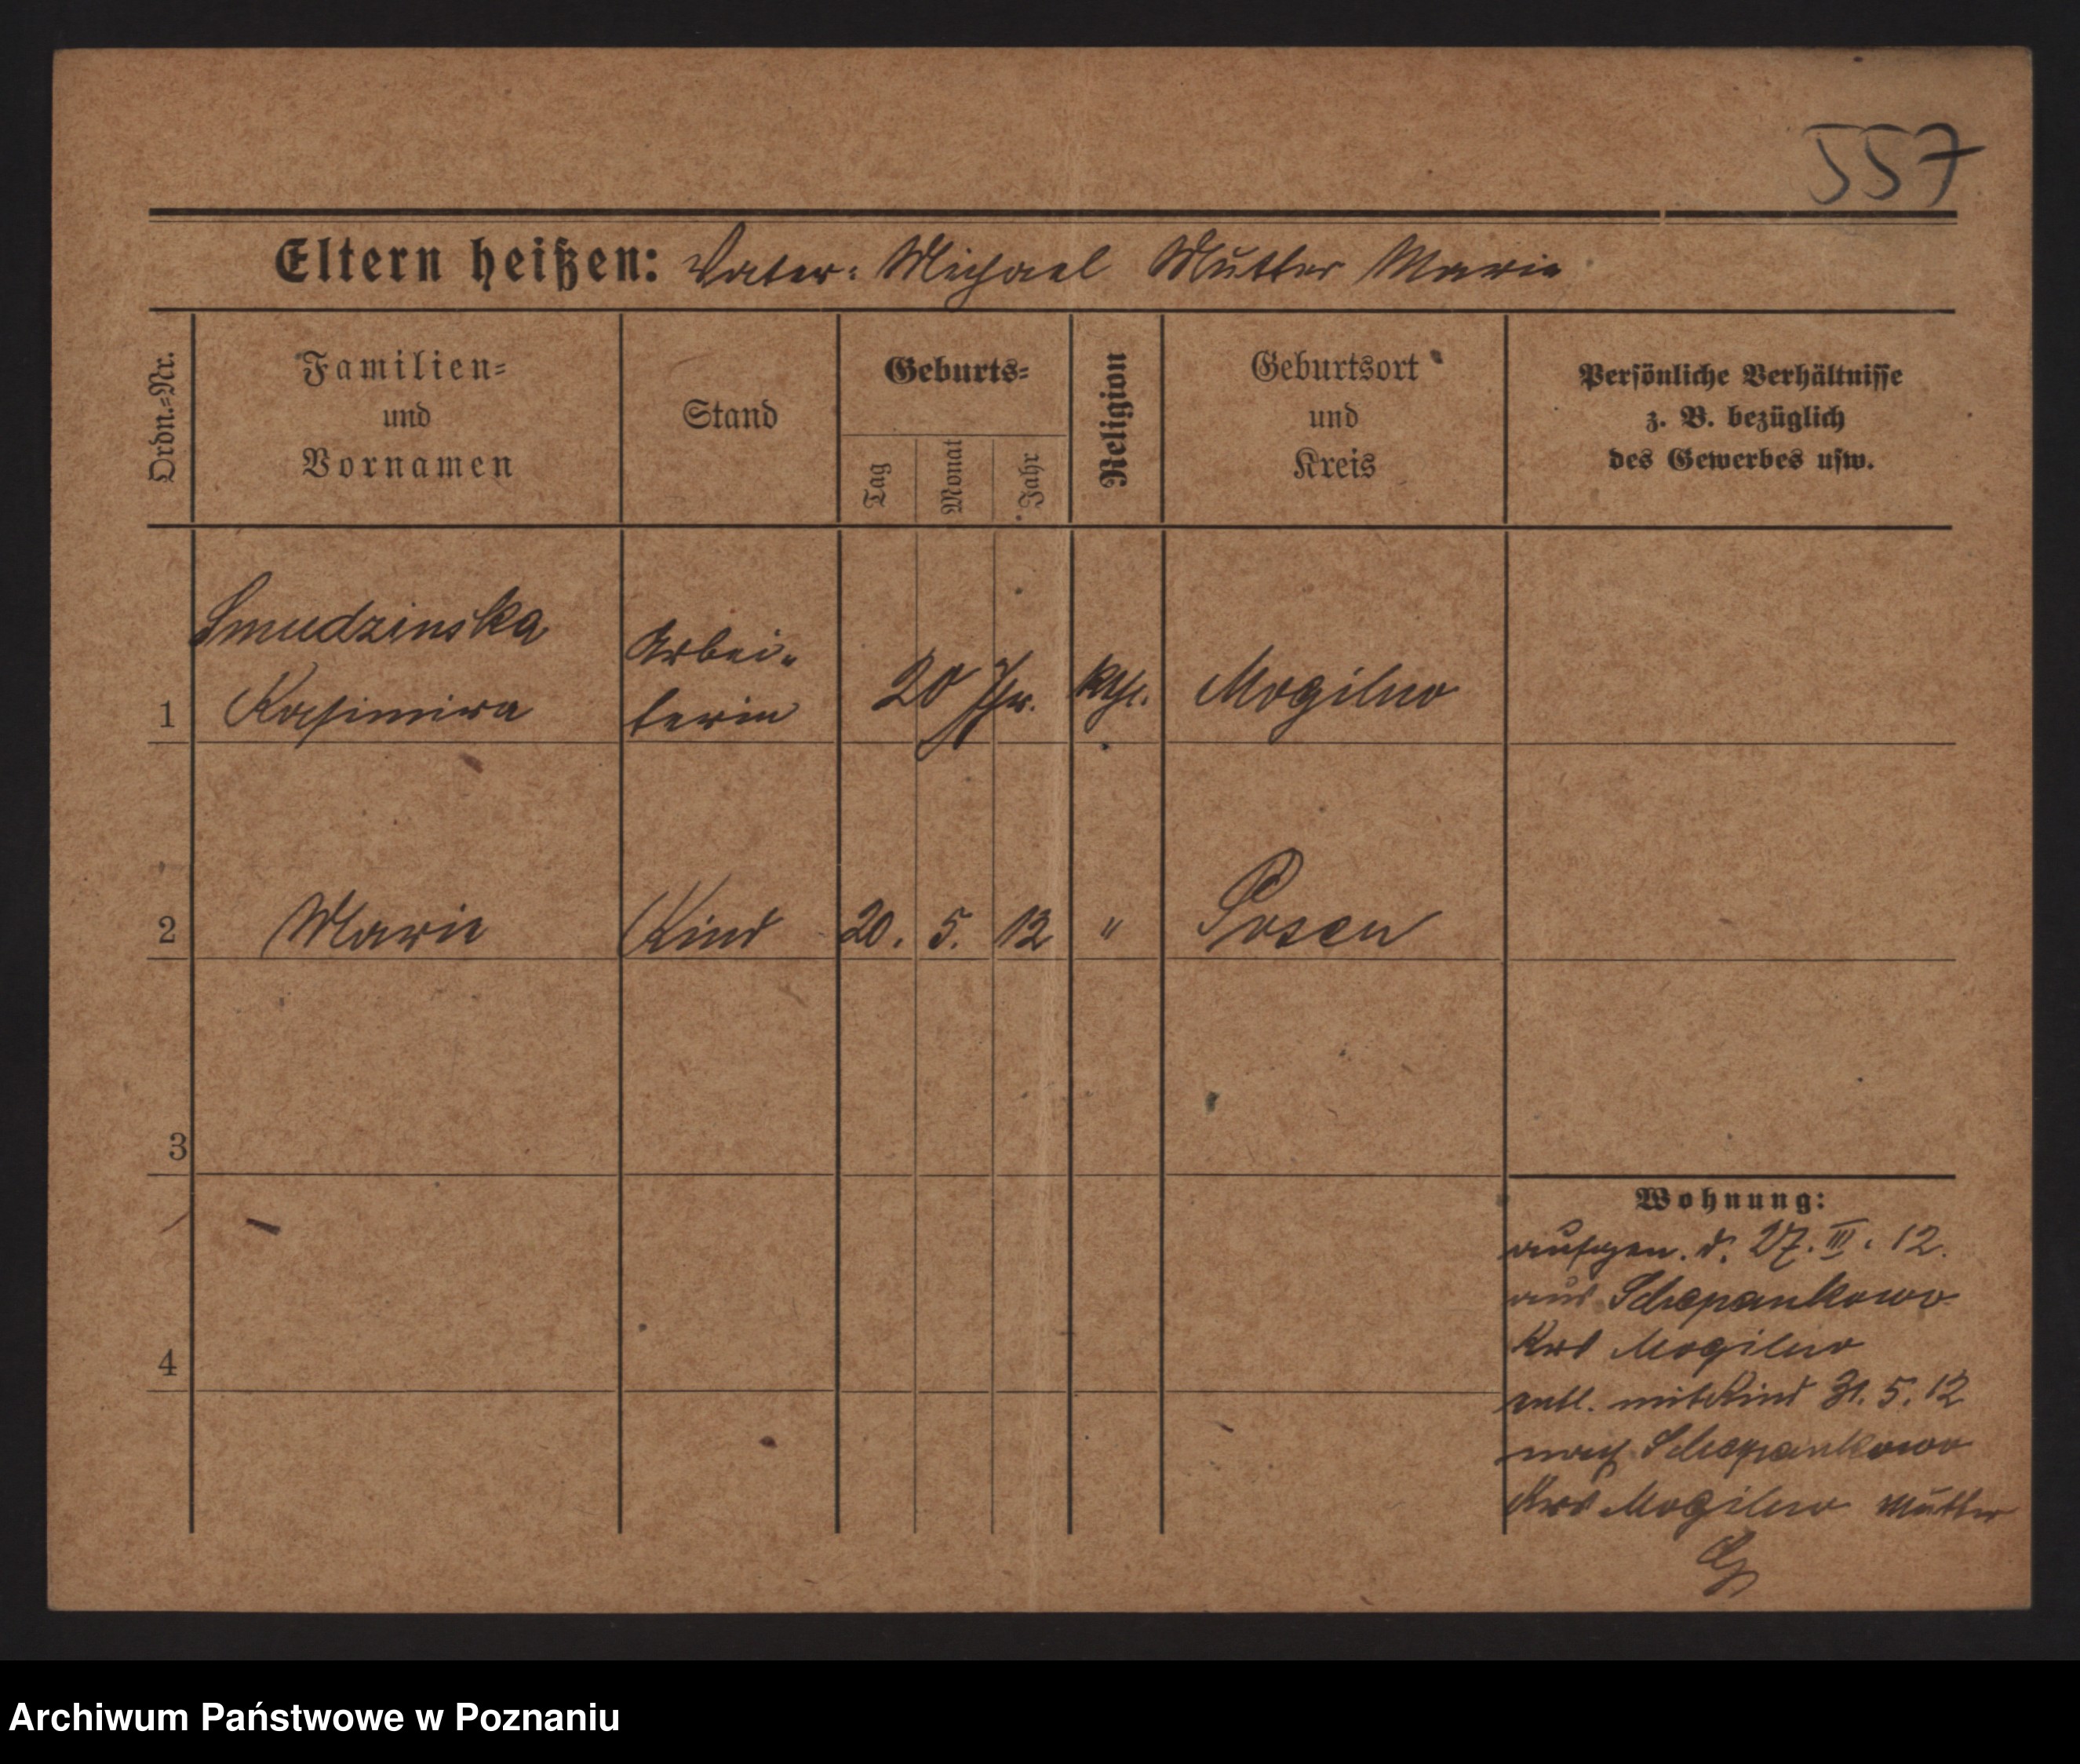 557
Eltern heißen: Vater: Michael Mutter Marie
Ordn.-Nr.
Familien- und Vornamen
Stand
Geburts-
Tag
Monat
Jahr
Religion
Geburtsort und Kreis
Persönliche Verhältnisse
z. B. bezüglich
des Gewerbes usw.
Smudzinska
Arbei-
1 Kasimira terin 20 Jhr. kth. Mogilno
2 Marie Kind 20. 5. 12 " Posen
3
4
Wohnung:
aufgen. d. 27. III. 12.
aus Schepankowo
Krs Mogilno
entl. mit Kind 31. 5. 12
nach Schepankowo
Krs Mogilno Mutter
Archiwum Państwowe w Poznaniu